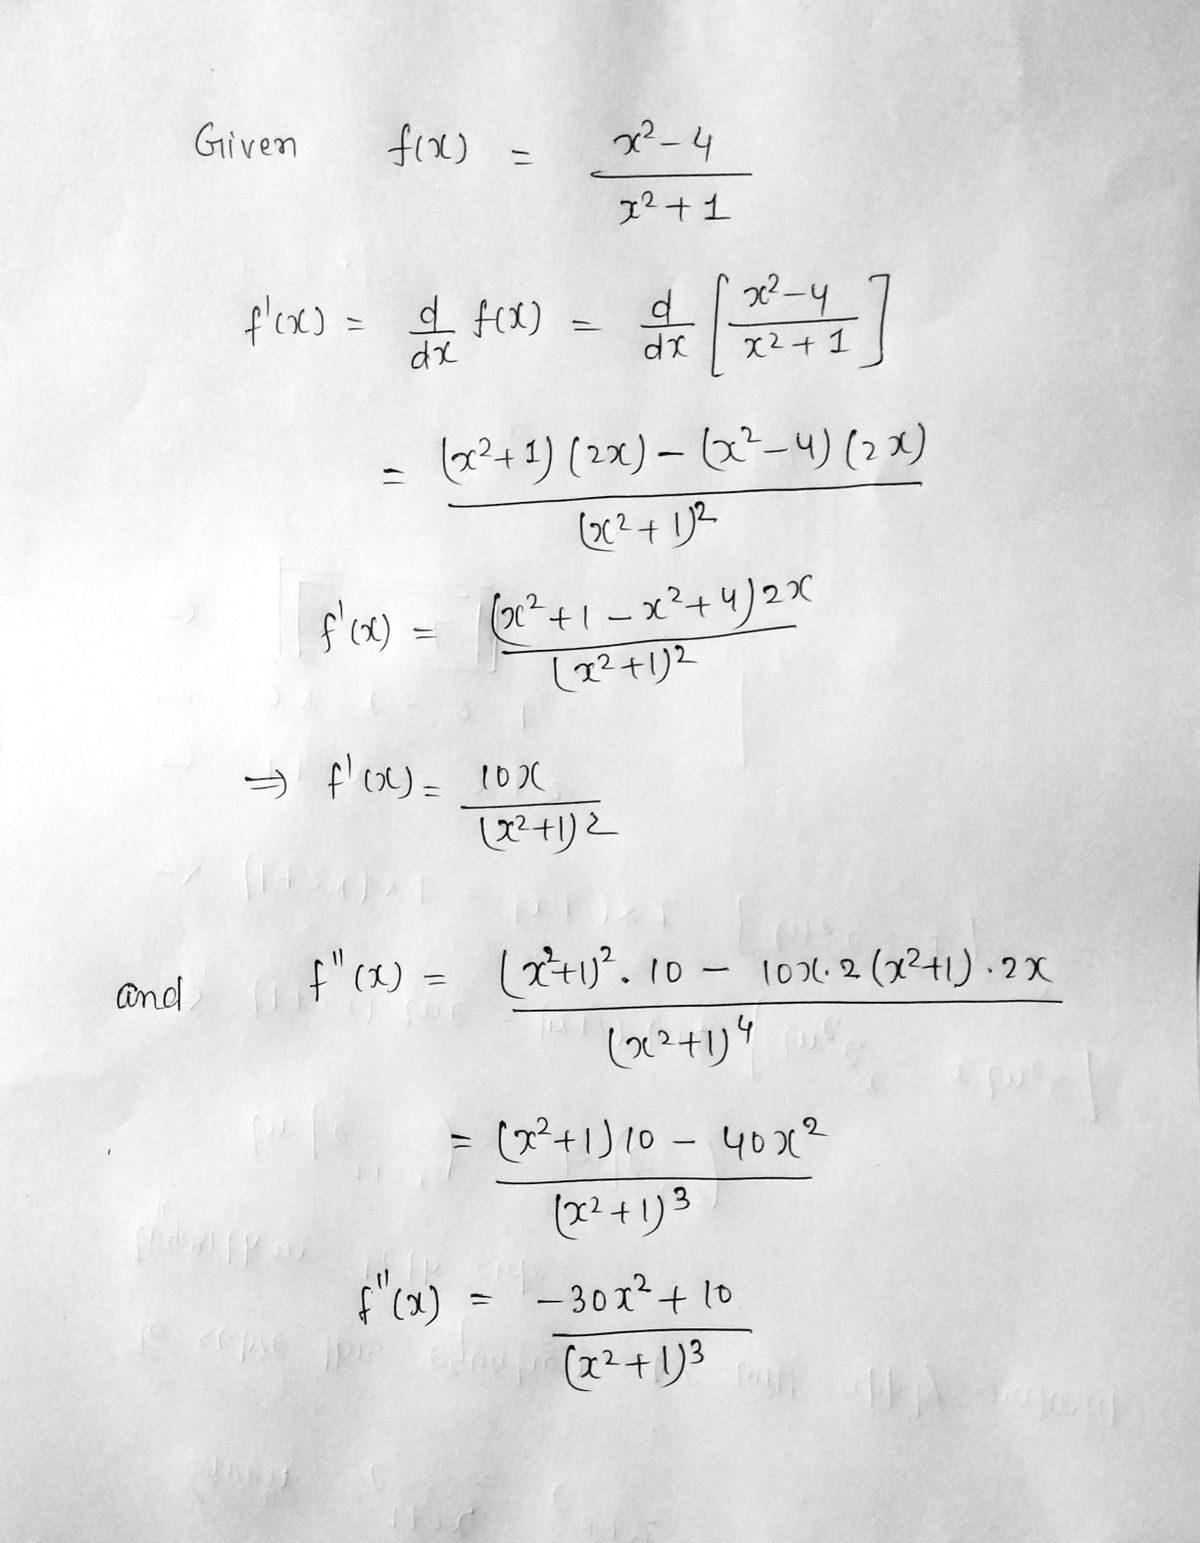 Given f(x) = x² - 4 / x² + 1
f'(x) = d/dx f(x) = d/dx [x² - 4 / x² + 1]
= (x² + 1) (2x) - (x² - 4) (2x) / (x² + 1)²
f'(x) = (x² + 1 - x² + 4) 2x / (x² + 1)²
⇒ f'(x) = 10x / (x² + 1)²
and f''(x) = (x² + 1)² . 10 - 10x . 2 (x² + 1) . 2x / (x² + 1)⁴
= (x² + 1) 10 - 40x² / (x² + 1)³
f''(x) = -30x² + 10 / (x² + 1)³